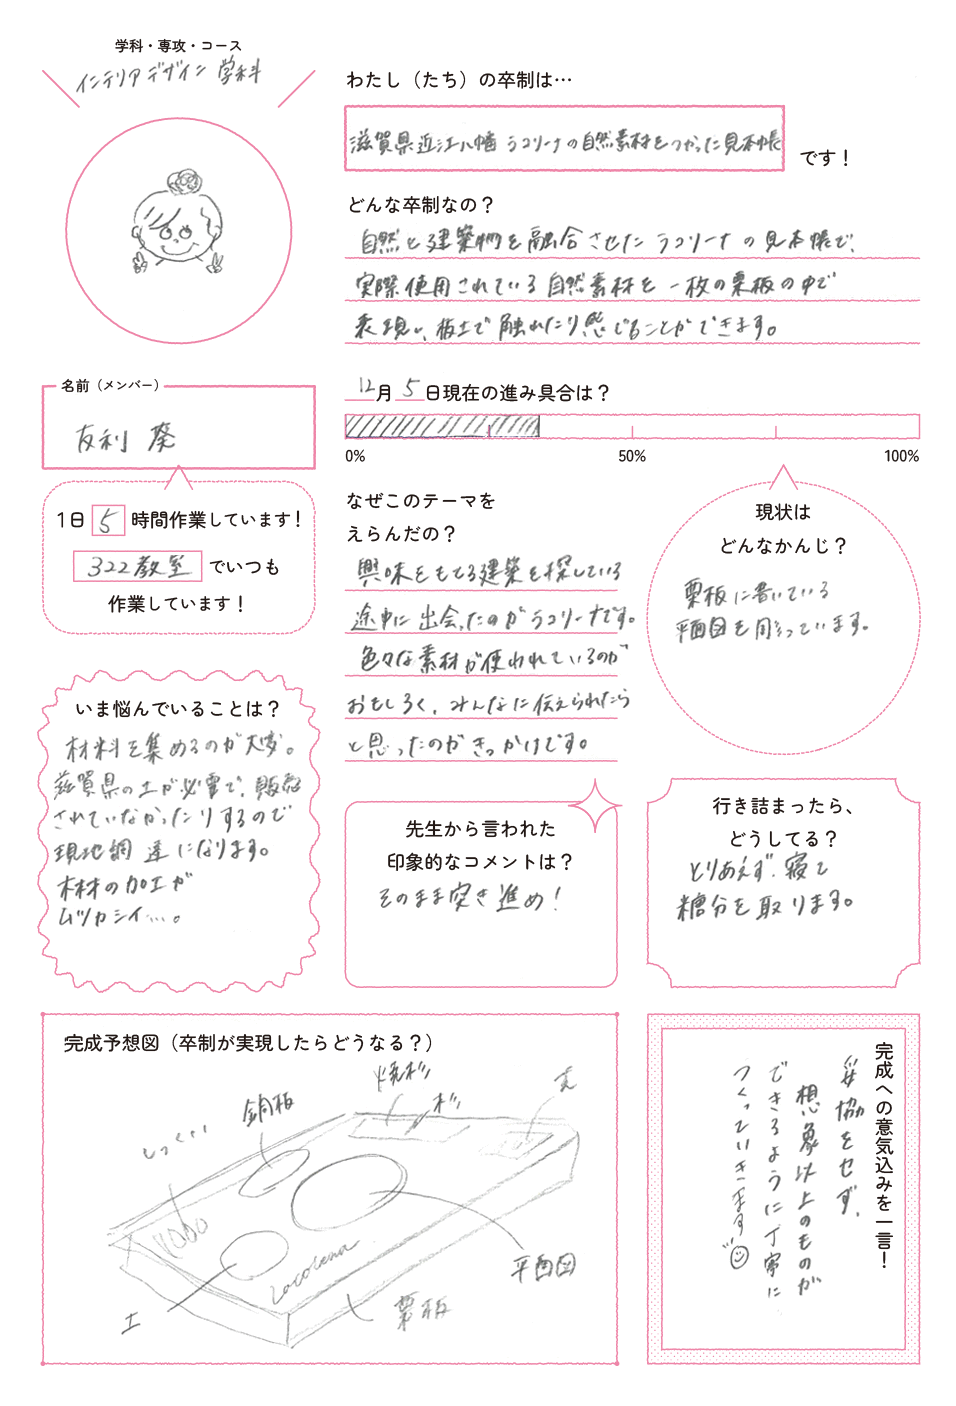 学科・専攻・コース
インテリアデザイン学科
わたし（たち）の卒制は…
滋賀県近江八幡 ラコリーナの自然素材をつかった見本帳
です！
どんな卒制なの？
自然と建築物を融合させたラコリーナの見本帳で、
実際使用されている自然素材を一枚の栗板の中で
表現し、板上で触れたり感じることができます。
名前（メンバー）
友利 葵
12月5日現在の進み具合は？
0%
50%
100%
1日5時間作業しています！
322教室でいつも
作業しています！
なぜこのテーマを
えらんだの？
興味をもてる建築を探している
途中に出会ったのがラコリーナです。
色々な素材が使われているのが
おもしろく、みんなに伝えられたら
と思ったのがきっかけです。
現状は
どんなかんじ？
栗板に書いている
平面図を彫っています。
いま悩んでいることは？
材料を集めるのが大変。
滋賀県の土が必要で、販売
されていなかったりするので
現地調達になります。
木材の加工が
ムツカシイ…。
先生から言われた
印象的なコメントは？
そのまま突き進め！
行き詰まったら、
どうしてる？
とりあえず寝て
糖分を取ります。
完成予想図（卒制が実現したらどうなる？）
焼杉
杉
銅板
しっくい
土
Lacolena
平面図
栗板
完成への意気込みを一言！
妥協をせず、
想象以上のものが
できるように丁寧に
つくっていきます